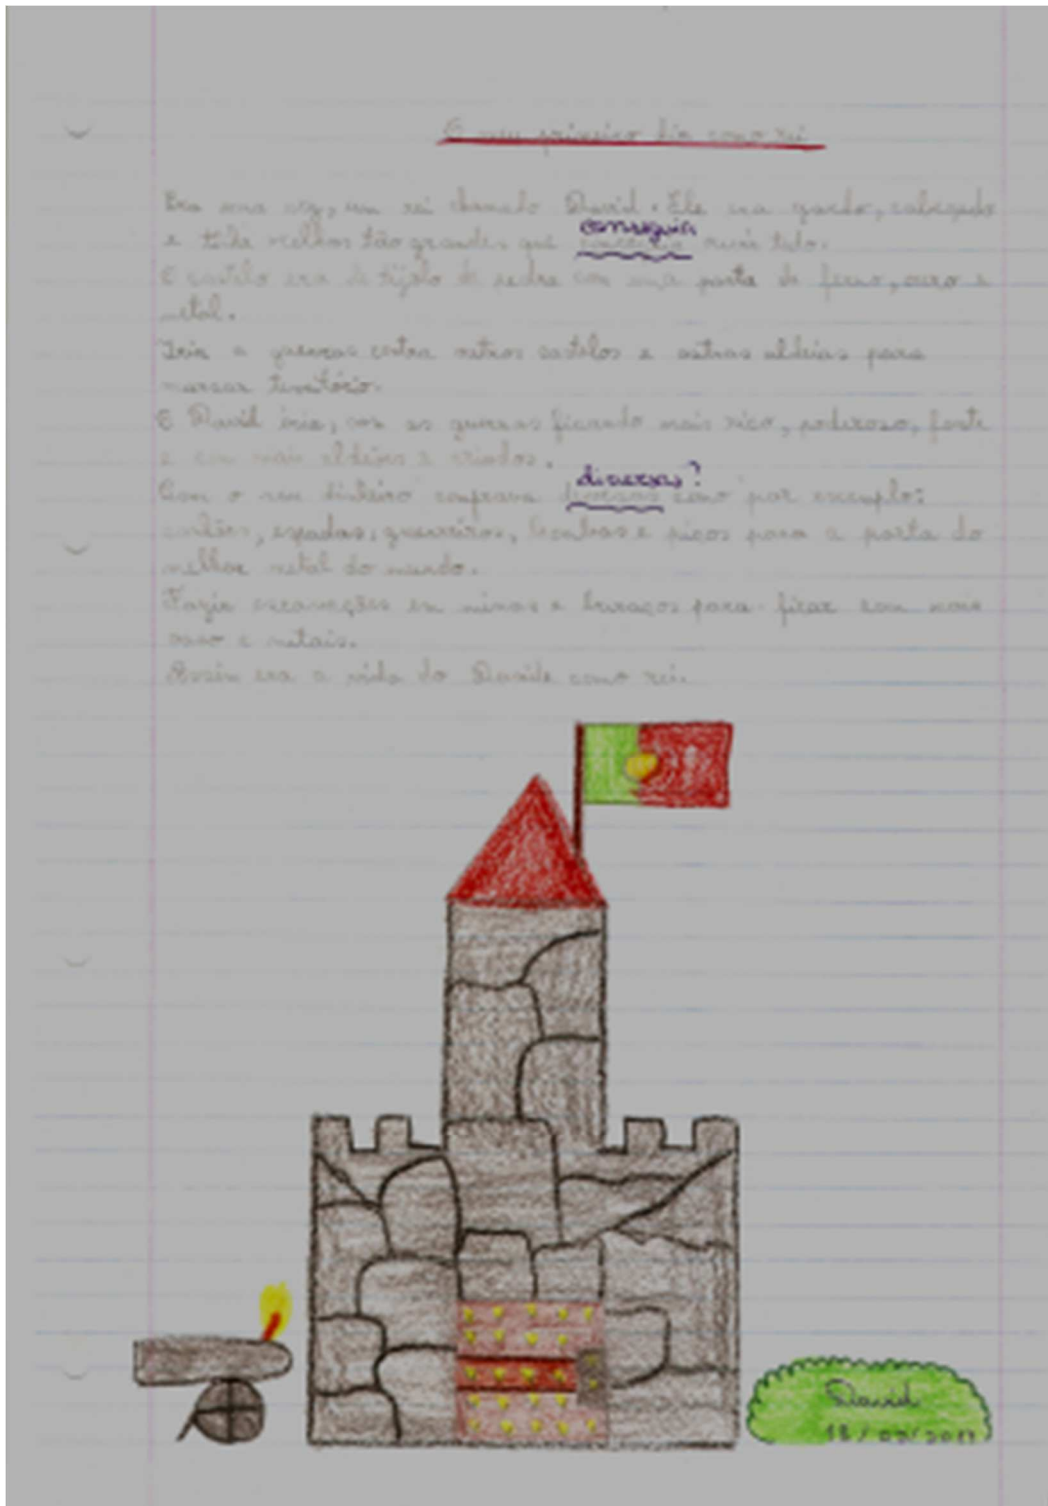 O meu primeiro dia como rei
Era uma vez, um rei chamado David. Ele era gordo, cabeçudo
conseguia
e tinha orelhas tão grandes que ouvir tudo.
O castelo era de tijolo de pedra com uma porta de ferro, ouro e
metal.
Iria a guerras contra outros castelos e outras aldeias para
marcar território.
O David iria, com as guerras ficando mais rico, poderoso, forte
e com mais aldeias e criados.
diversas?
Com o seu dinheiro comprava diversas como por exemplo:
canhões, espadas, guerreiros, bombas e picos para a porta do
melhor metal do mundo.
Fazia escavações em minas e buracos para ficar com mais
ouro e metais.
Assim era a vida do Davide como rei.
David
18/09/2017